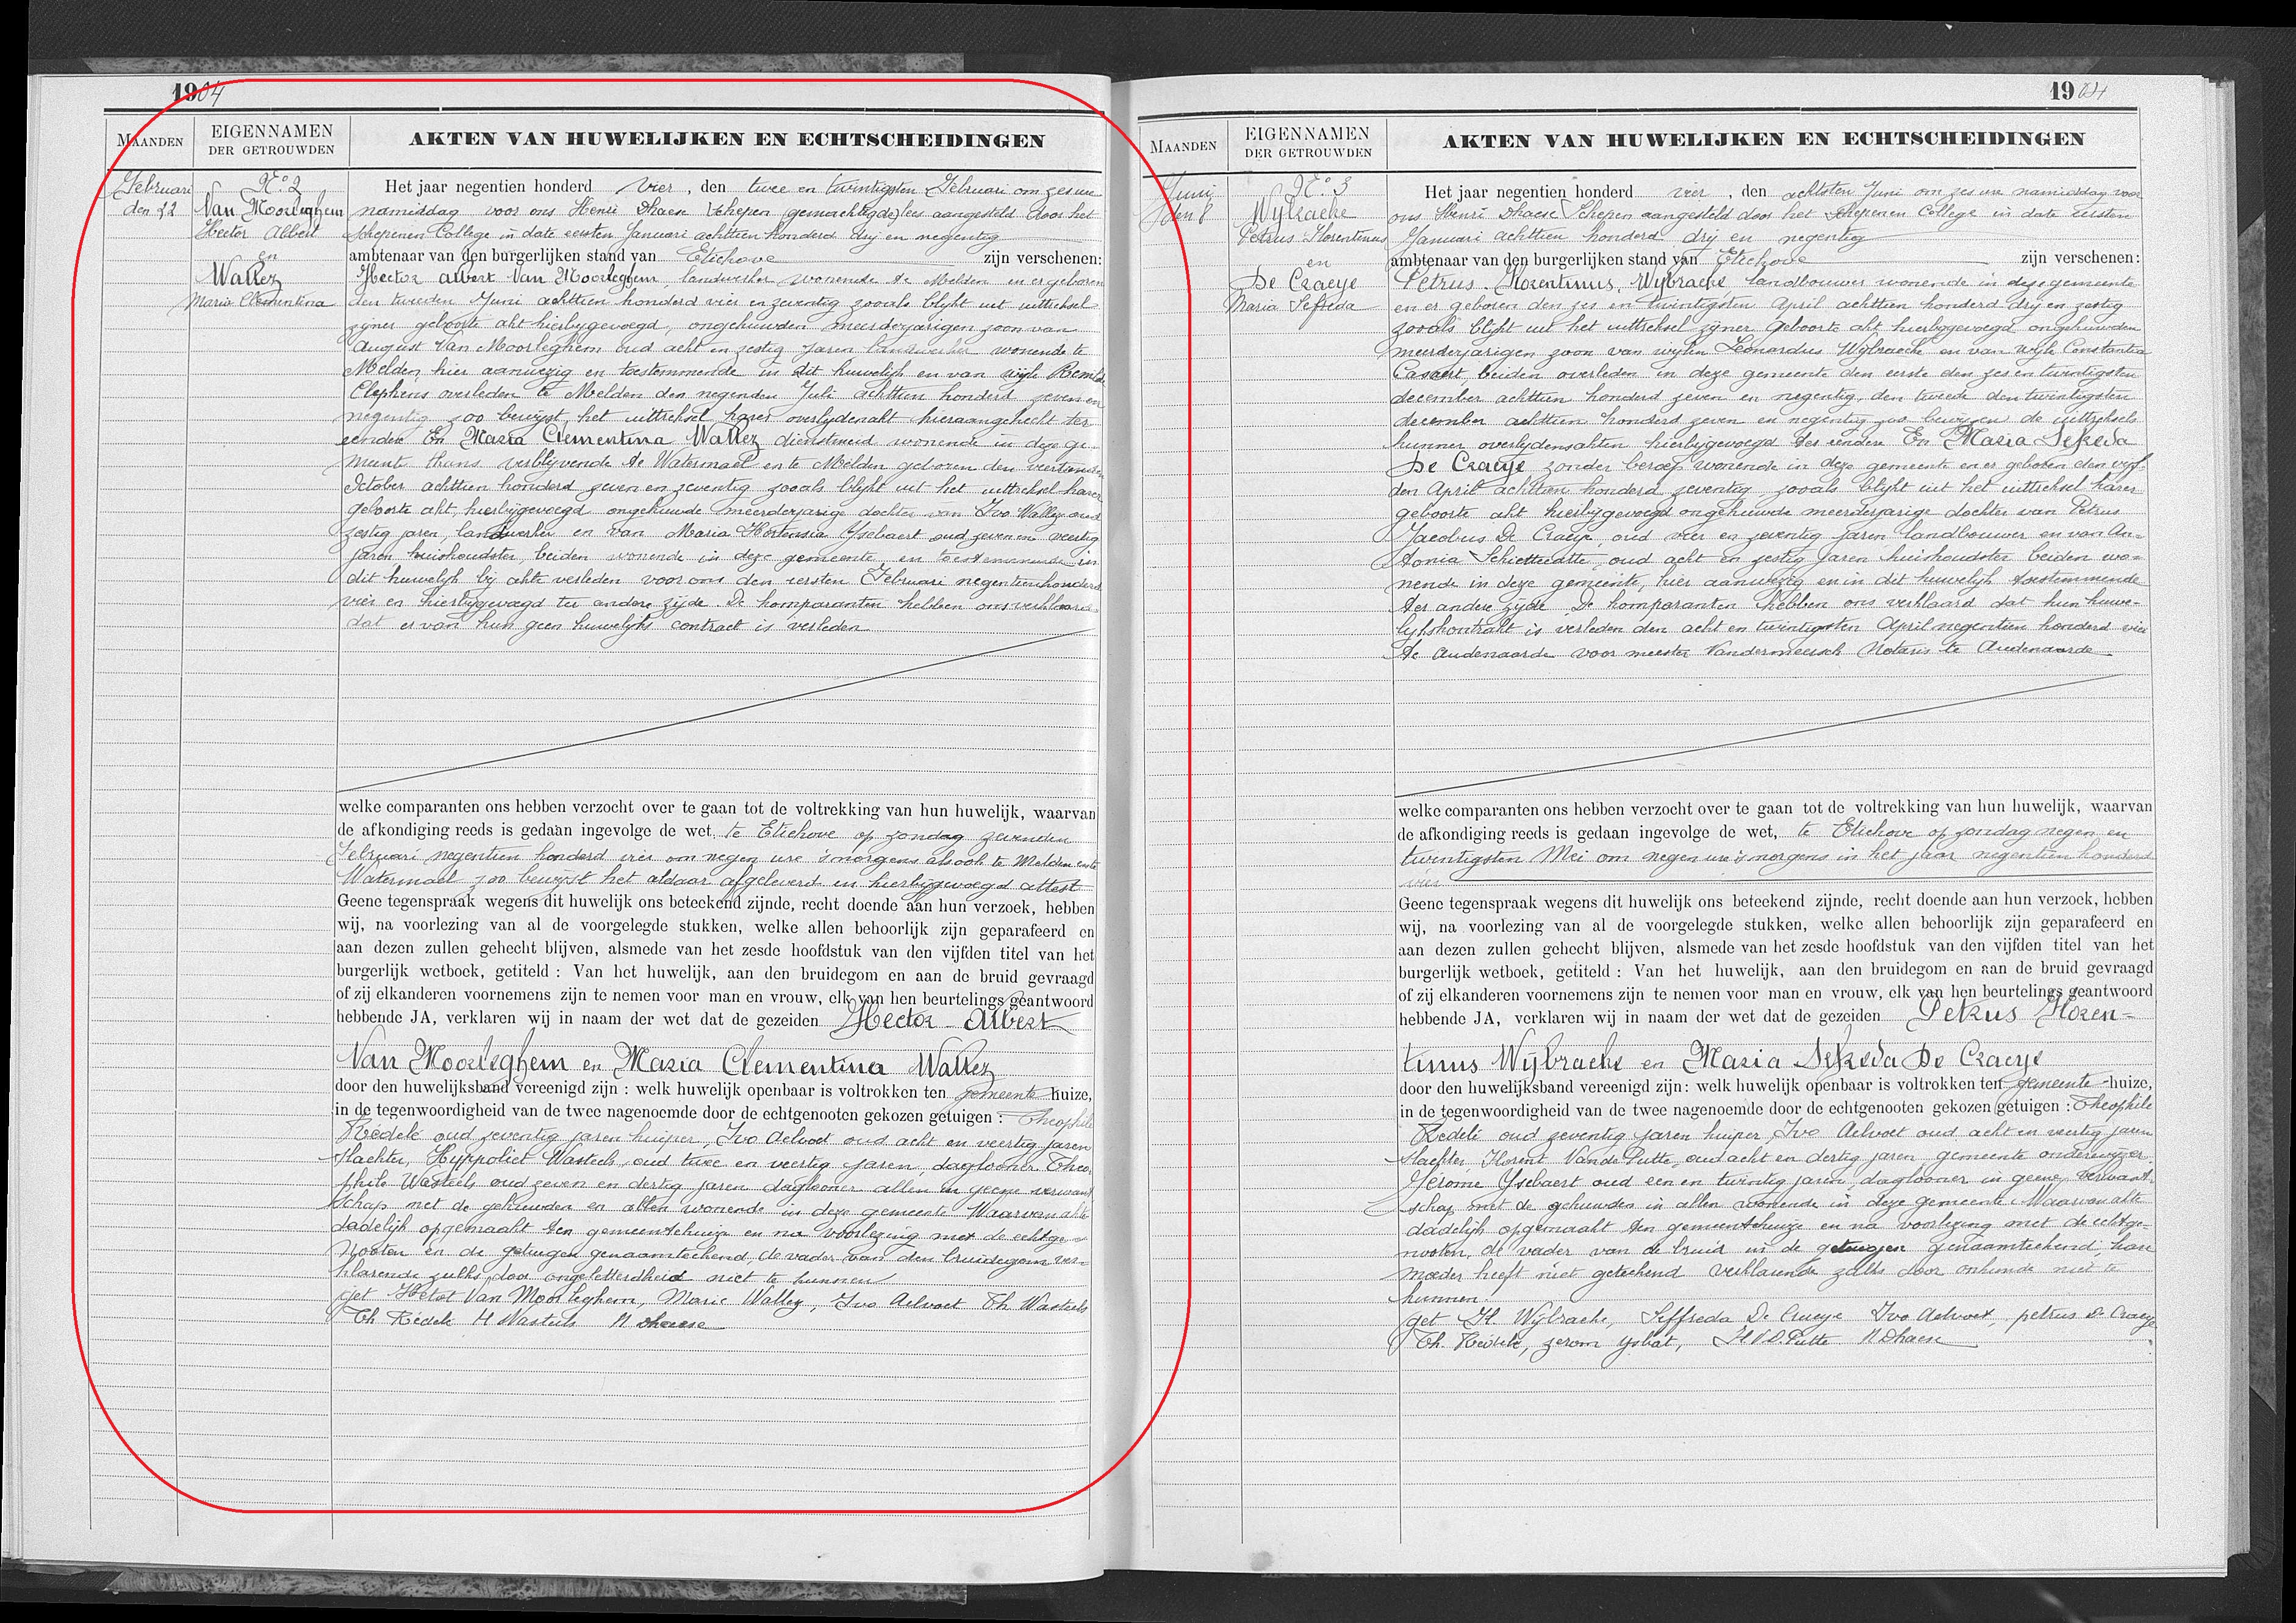 1904
MAANDEN
EIGENNAMEN
DER GETROUWDEN
AKTEN VAN HUWELIJKEN EN ECHTSCHEIDINGEN
Februari
den 22
N.º 2
Van Moorleghem
Hector Albert
en
Wallez
Maria Clementina
Het jaar negentien honderd vier, den twee en twintigsten Februari om zes ure
namiddag voor ons Henri Dhaese Schepen (gemachtigde) lees aangesteld door het
Schepenen College in date eersten Januari achttien honderd drij en negentig
ambtenaar van den burgerlijken stand van Etichove zijn verschenen:
Hector Albert Van Moorleghem, landwerker wonende te Melden en er geboren
den tweeden Juni achttien honderd vier en zeventig zooals blijkt uit uittreksel
zijner geboorte akt hierbijgevoegd, ongehuwden meerderjarigen zoon van
August Van Moorleghem oud acht en zestig jaren landwerker wonende te
Melden, hier aanwezig en toestemmende in dit huwelijk en van wijle
Clephens overleden te Melden den negenden Juli achttien honderd zeven en
negentig zoo bewijst het uittreksel harer overlijdenakt hieraangehecht ter
eender En Maria Clementina Wallez dienstmeid wonende in deze ge-
meente thans verblijvende te Watermael en te Melden geboren den veertienden
October achttien honderd zeven en zeventig zooals blijkt uit het uittreksel harer
geboorte akt, hierbijgevoegd ongehuwde meerderjarige dochter van Ivo Wallez oud
zestig jaren, landwerker en van Maria Hortensia Ysebaert oud zeven en veertig
jaren huishoudster beiden wonende in deze gemeente en toestemmende in
dit huwelijk bij akte verleden voor ons den eersten Februari negentienhonderd
vier en hierbijgevoegd ter andere zijde De komparanten hebben ons verklaard
dat er van hun geen huwelijks contract is verleden
welke comparanten ons hebben verzocht over te gaan tot de voltrekking van hun huwelijk, waarvan
de afkondiging reeds is gedaan ingevolge de wet, te Etichove op zondag zevenden
Februari negentien honderd vier om negen ure 's morgens alsook te Melden en te
Watermael zoo bewijst het aldaar afgeleverd en hierbijgevoegd attest
Geene tegenspraak wegens dit huwelijk ons beteekend zijnde, recht doende aan hun verzoek, hebben
wij, na voorlezing van al de voorgelegde stukken, welke allen behoorlijk zijn geparafeerd en
aan dezen zullen gehecht blijven, alsmede van het zesde hoofdstuk van den vijfden titel van het
burgerlijk wetboek, getiteld : Van het huwelijk, aan den bruidegom en aan de bruid gevraagd
of zij elkanderen voornemens zijn te nemen voor man en vrouw, elk van hen beurtelings geantwoord
hebbende JA, verklaren wij in naam der wet dat de gezeiden Hector Albert
Van Moorleghem en Maria Clementina Wallez
door den huwelijksband vereenigd zijn : welk huwelijk openbaar is voltrokken ten gemeente huize,
in de tegenwoordigheid van de twee nagenoemde door de echtgenooten gekozen getuigen : Theophile
Kedele oud zeventig jaren kuiper, Ivo Aelvoet oud acht en veertig jaren
slachter, Hyppoliet Wasteels, oud twee en veertig jaren, daglooner Theo-
phile Wasteels oud zeven en dertig jaren daglooner allen in geene verwant-
schap met de gehuwden en allen wonende in deze gemeente Waarvan akte
dadelijk opgemaakt ten gemeentehuize en na voorlezing met de echtge-
nooten en de getuigen genaamteekend, de vader van den bruidegom ver-
klarende zulks door ongeletterdheid niet te kunnen
get Hector Van Moorleghem, Marie Wallez, Ivo Aelvoet Th Wasteels
Th Kedele H Wasteels H Dhaese
1904
MAANDEN
EIGENNAMEN
DER GETROUWDEN
AKTEN VAN HUWELIJKEN EN ECHTSCHEIDINGEN
Junij
den 8
N.º 3
Wijbraeke
Petrus Florentinus
en
De Craeye
Maria Sefreda
Het jaar negentien honderd vier, den achtsten Juni om zes ure namiddag voor
ons Henri Dhaese Schepen aangesteld door het Schepenen College in date eersten
Januari achttien honderd drij en negentig
ambtenaar van den burgerlijken stand van Etichove zijn verschenen:
Petrus Florentinus Wijbraeke, landbouwer wonende in deze gemeente
en er geboren den zes en twintigsten April achttien honderd drij en zestig
zooals blijkt uit het uittreksel zijner geboorte akt hierbijgevoegd ongehuwden
meerderjarigen zoon van wijlen Leonardus Wijbraeke en van wijle Constantia
beiden overleden in deze gemeente den eerste den zes en twintigsten
december achttien honderd zeven en negentig, den tweede den twintigsten
december achttien honderd zeven en negentig zoo bewijzen de uittreksels
hunner overlijdensakten hierbijgevoegd ter eendere En Maria Sefreda
De Craeye zonder beroep wonende in deze gemeente en er geboren den vijf-
den April achttien honderd zeventig zooals blijkt uit het uittreksel harer
geboorte akt hierbijgevoegd ongehuwde meerderjarige dochter van Petrus
Jacobus De Craeye, oud vier en zeventig jaren landbouwer en van An-
tonia Schietecatte, oud acht en zestig jaren huishoudster beiden wo-
nende in deze gemeente, hier aanwezig en in dit huwelijk toestemmende
ter andere zijde De komparanten hebben ons verklaard dat hun huwe-
lijkskontrakt is verleden den acht en twintigsten April negentien honderd vier
te Audenaarde voor meester Vandermeersch Notaris te Audenaarde
welke comparanten ons hebben verzocht over te gaan tot de voltrekking van hun huwelijk, waarvan
de afkondiging reeds is gedaan ingevolge de wet, te Etichove op zondag negen en
twintigsten Mei om negen ure 's morgens in het jaar negentien honderd
vier
Geene tegenspraak wegens dit huwelijk ons beteekend zijnde, recht doende aan hun verzoek, hebben
wij, na voorlezing van al de voorgelegde stukken, welke allen behoorlijk zijn geparafeerd en
aan dezen zullen gehecht blijven, alsmede van het zesde hoofdstuk van den vijfden titel van het
burgerlijk wetboek, getiteld : Van het huwelijk, aan den bruidegom en aan de bruid gevraagd
of zij elkanderen voornemens zijn te nemen voor man en vrouw, elk van hen beurtelings geantwoord
hebbende JA, verklaren wij in naam der wet dat de gezeiden Petrus Floren-
tinus Wijbraeke en Maria Sefreda De Craeye
door den huwelijksband vereenigd zijn : welk huwelijk openbaar is voltrokken ten gemeente huize,
in de tegenwoordigheid van de twee nagenoemde door de echtgenooten gekozen getuigen : Theophile
Kedele oud zeventig jaren kuiper, Ivo Aelvoet oud acht en veertig jaren
slachter, Florent Van de Putte, oud acht en dertig jaren gemeente onderwijzer
Jerome Ysebaert oud een en twintig jaren, daglooner in geene verwant-
schap met de gehuwden in allen wonende in deze gemeente Waarvan akte
dadelijk opgemaakt ten gemeentehuize en na voorlezing met de echtge-
nooten, de vader van de bruid en de getuigen genaamteekend, hare
moeder heeft niet geteekend verklarende zulks door onkunde niet te
kunnen.
get Fl. Wijbraeke, Seffreda De Craeye Ivo Aelvoet, petrus De Craeye
Th. Kedele, jerom ysbat, Fl V.D. Putte H Dhaese